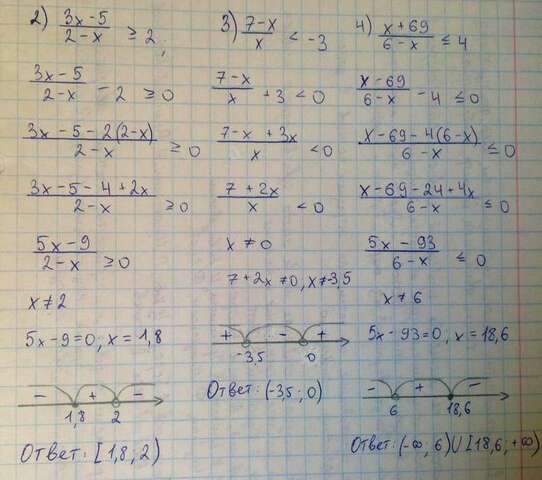 2) (3x-5)/(2-x) ≥ 2;
(3x-5)/(2-x) - 2 ≥ 0
(3x-5-2(2-x))/(2-x) ≥ 0
(3x-5-4+2x)/(2-x) ≥ 0
(5x-9)/(2-x) ≥ 0
x ≠ 2
5x-9=0, x=1,8
- + -
1,8 2
Ответ: [1,8; 2)
3) (7-x)/x < -3
(7-x)/x + 3 < 0
(7-x+3x)/x < 0
(7+2x)/x < 0
x ≠ 0
7+2x≠0, x≠-3,5
+ - +
-3,5 0
Ответ: (-3,5; 0)
4) (x+69)/(6-x) ≤ 4
(x-69)/(6-x) - 4 ≤ 0
(x-69-4(6-x))/(6-x) ≤ 0
(x-69-24+4x)/(6-x) ≤ 0
(5x-93)/(6-x) ≤ 0
x ≠ 6
5x-93=0, x=18,6
- + -
6 18,6
Ответ: (-∞; 6)∪[18,6; +∞)